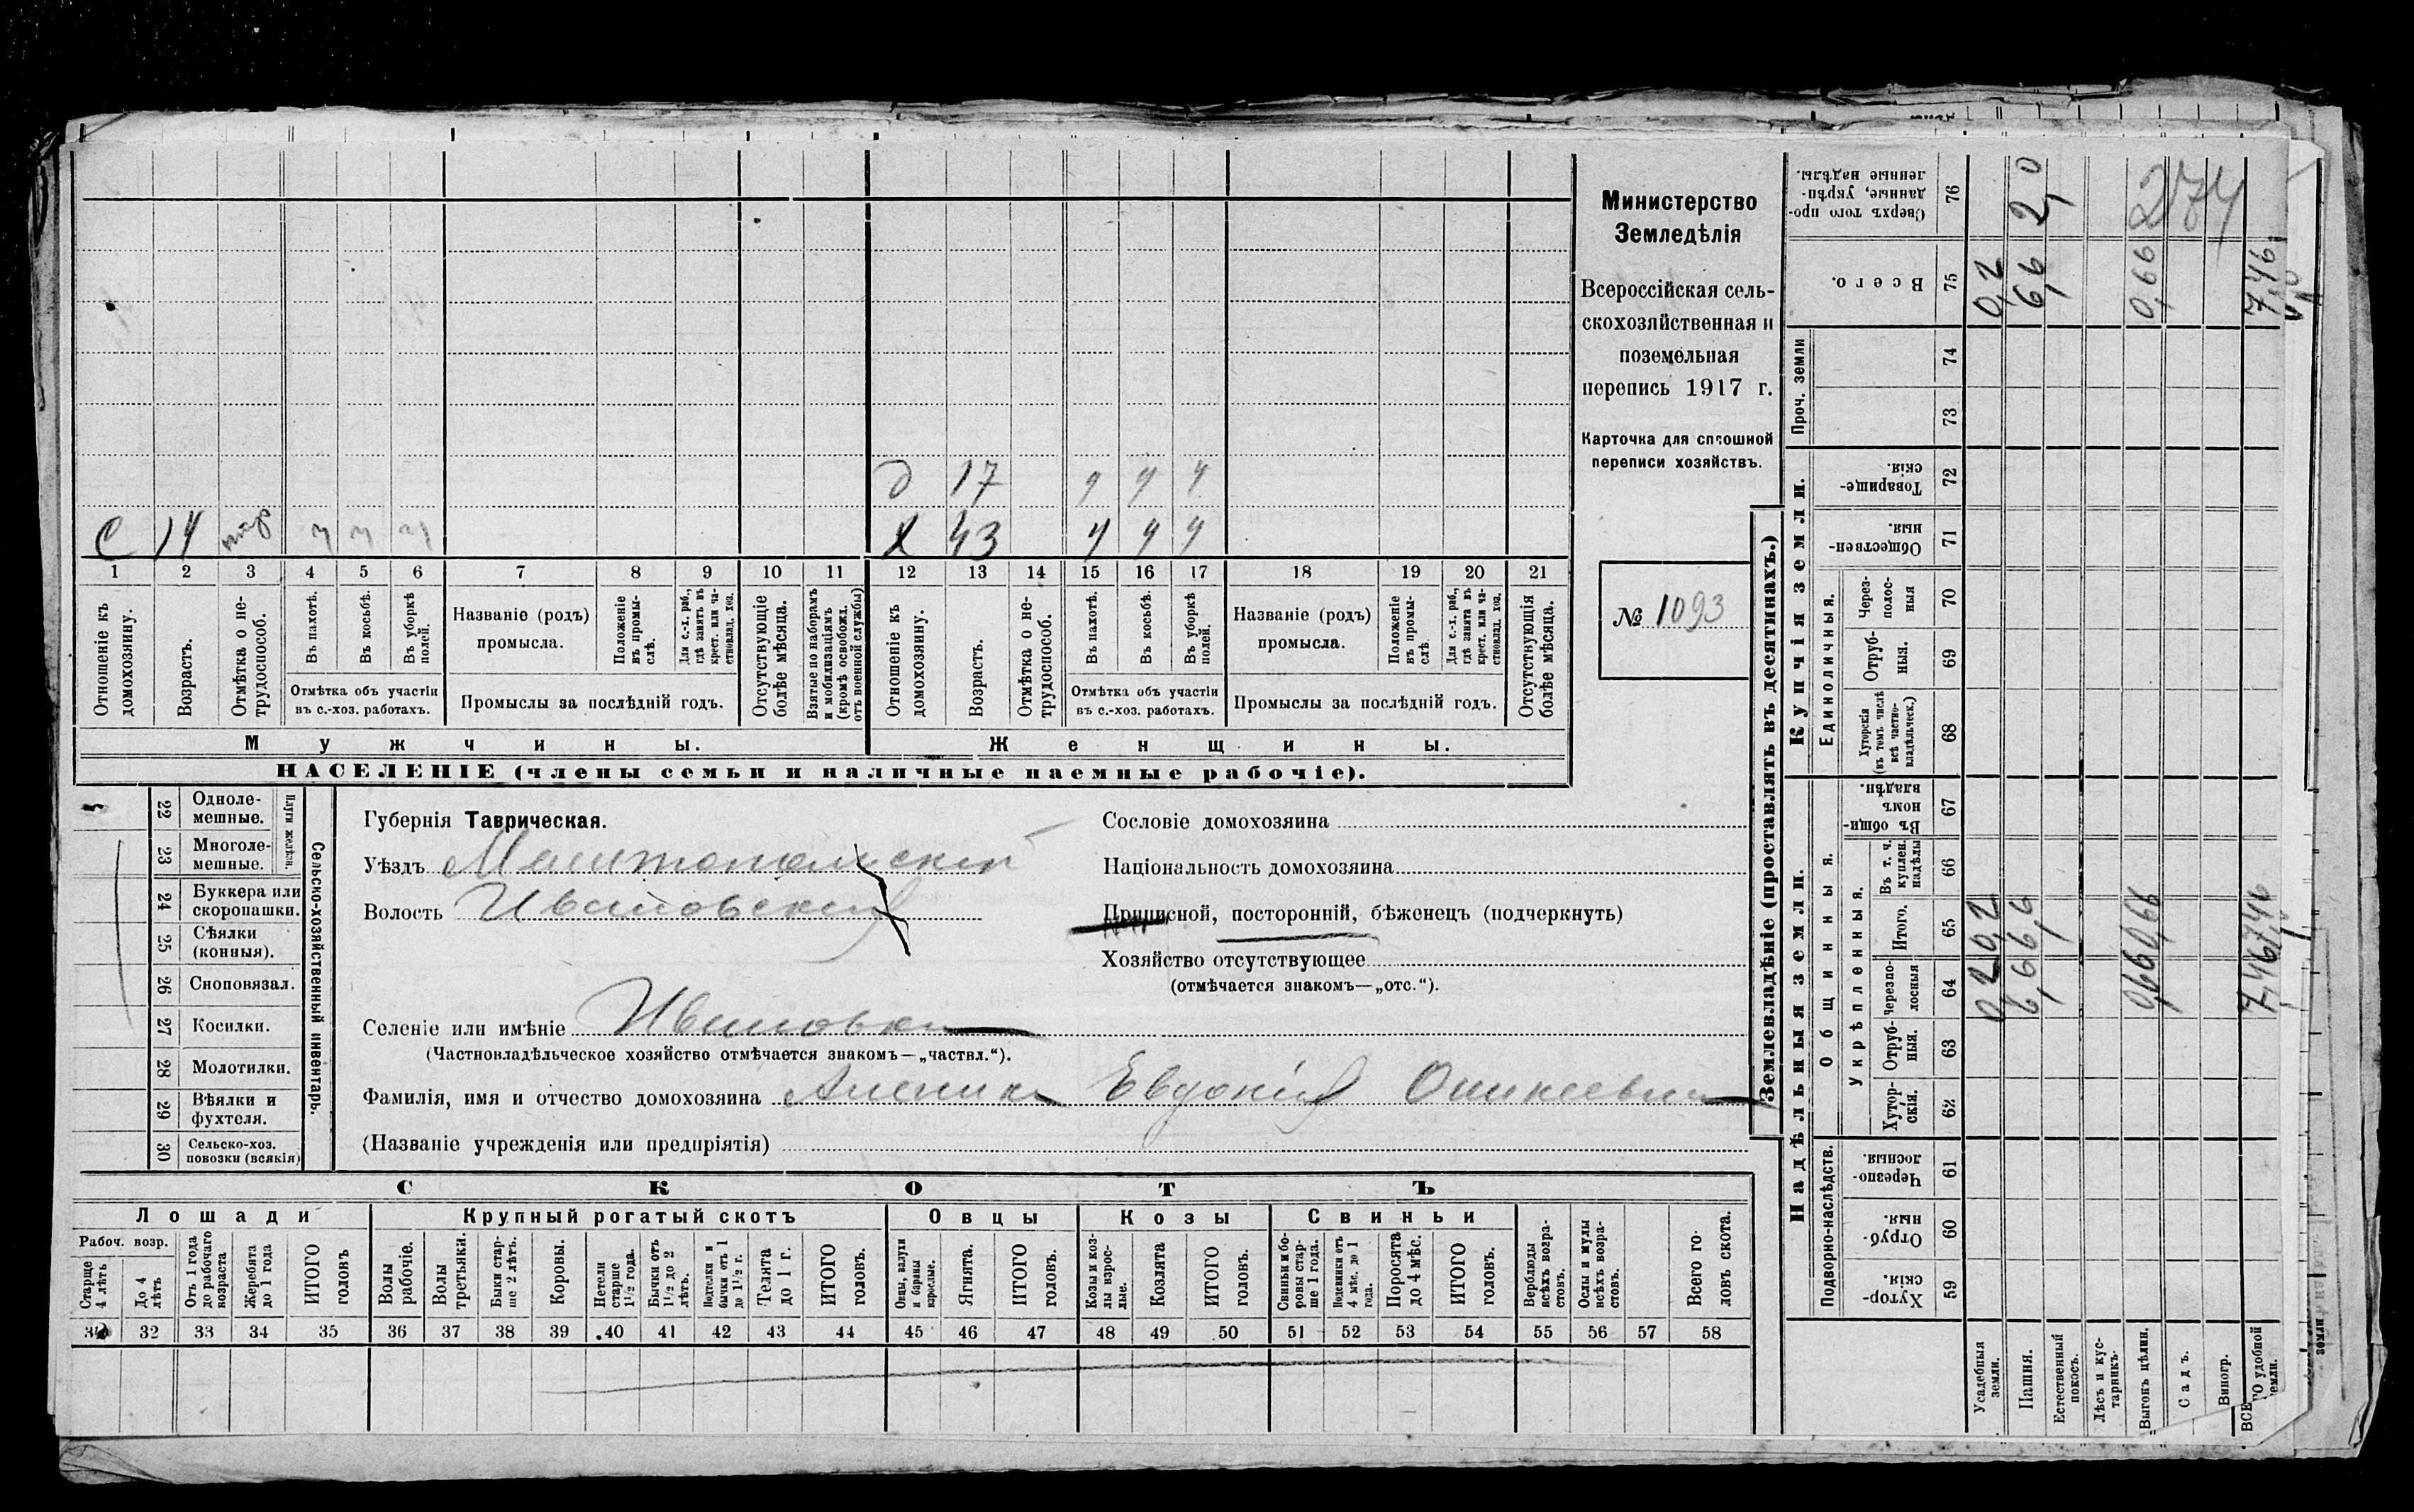 Министерство
Земледѣлія
Всероссійская сель-
скохозяйственная и
поземельная
перепись 1917 г.
Карточка для сплошной
переписи хозяйствъ.
№ 1093
д 17 ч ч ч
С 14
Х 43 ч ч ч
1 2 3 4 5 6 7 8 9 10 11 12 13 14 15 16 17 18 19 20 21
Отношеніе къ домохозяину.
Возрастъ.
Отмѣтка о не-трудоспособ.
Въ пахотѣ.
Въ косьбѣ.
Въ уборкѣ полей.
Отмѣтка объ участіи
въ с.-хоз. работахъ.
Названіе (родъ)
промысла.
Положеніе въ промы-слѣ.
Для с.-х. раб., гдѣ занятъ въ крест. или ча-стновлад. хоз.
Промыслы за послѣдній годъ.
Отсутствующіе болѣе мѣсяца.
Взятые по наборамъ и мобилизаціямъ (кромѣ освобожд. отъ военной службы)
Отношеніе къ домохозяину.
Возрастъ.
Отмѣтка о не-трудоспособ.
Въ пахотѣ.
Въ косьбѣ.
Въ уборкѣ полей.
Отмѣтка объ участіи
въ с.-хоз. работахъ.
Названіе (родъ)
промысла.
Положеніе въ промы-слѣ
Для с.-х. раб., гдѣ занята въ крест. или ча-стновлад. хоз.
Промыслы за послѣдній годъ.
Отсутствующія болѣе мѣсяца.
Мужчины.
Женщины.
НАСЕЛЕНІЕ (члены семьи и наличные наемные рабочіе).
Сельско-хозяйственный инвентарь.
22 Одноле-мешные.
23 Многоле-мешные.
24 Буккера или скоропашки.
25 Сѣялки (конныя).
26 Сноповязал.
27 Косилки.
28 Молотилки.
29 Вѣялки и фухтеля.
30 Сельско-хоз. повозки (всякія)
Губернія Таврическая.
Уѣздъ Мелитопольскій
Волость Ивановская
Селеніе или имѣніе Ивановка
(Частновладѣльческое хозяйство отмѣчается знакомъ—„частвл.“).
Фамилія, имя и отчество домохозяина Евдокія
(Названіе учрежденія или предпріятія)
Сословіе домохозяина
Національность домохозяина
Приписной, посторонній, бѣженецъ (подчеркнуть)
Хозяйство отсутствующее
(отмѣчается знакомъ—„отс.“).
СКОТЪ
Лошади
Крупный рогатый скотъ
Овцы
Козы
Свиньи
Рабоч. возр.
Старше 4 лѣтъ
До 4 лѣтъ
Отъ 1 года до рабочаго возраста
Жеребята до 1 года
ИТОГО головъ
Волы рабочіе.
Волы третьяки.
Быки стар-ше 2 лѣтъ.
Коровы.
Нетели старше 1½ года.
Бычки отъ 1½ до 2 лѣтъ.
Подтелки и бычки отъ 1 до 1½ г.
Телята до 1 г.
ИТОГО головъ.
Овцы, валухи и бараны взрослые.
Ягнята.
ИТОГО головъ.
Козы и коз-лы взрос-лые.
Козлята
ИТОГО головъ.
Свиньи и бо-ровы стар-ше 1 года.
Подсвинки отъ 4 мѣс. до 1 года.
Поросята до 4 мѣс.
ИТОГО головъ.
Верблюды всѣхъ возра-стовъ.
Ослы и мулы всѣхъ возра-стовъ.
Всего го-ловъ скота.
32 33 34 35 36 37 38 39 40 41 42 43 44 45 46 47 48 49 50 51 52 53 54 55 56 57 58
Землевладѣніе (проставлять въ десятинахъ.)
Надѣльныя земли.
Купчія земли.
Проч. земли
Подворно-наслѣдств.
Общинныя.
Укрѣпленныя.
Единоличныя.
Сверхъ того про-данные, укрѣп-ленные надѣлы. 76
Всего. 75
74
73
Товарище-скія. 72
Обществен-ныя. 71
Через-полос-ныя 70
Отруб-ныя. 69
Хуторскія (въ томъ числѣ всѣ частно-владѣльческ.) 68
Въ общи-номъ владѣн. 67
Въ т. ч. куплен. надѣлы 66
Итого. 65
Черезпо-лосныя 64
Отруб-ныя. 63
Хутор-скія. 62
Черезпо-лосныя. 61
Отруб-ныя. 60
Хутор-скія. 59
Усадебныя земли. 0,2 0,2 0,2
Пашня. 6,6 6,6 6,6 2,0
Естественный покосъ.
Лѣсъ и кус-тарникъ.
Выгонъ цѣлин. 0,66 0,66 0,66
Садъ.
Виногр.
удобной земли. 7,46 7,46 7,46
274